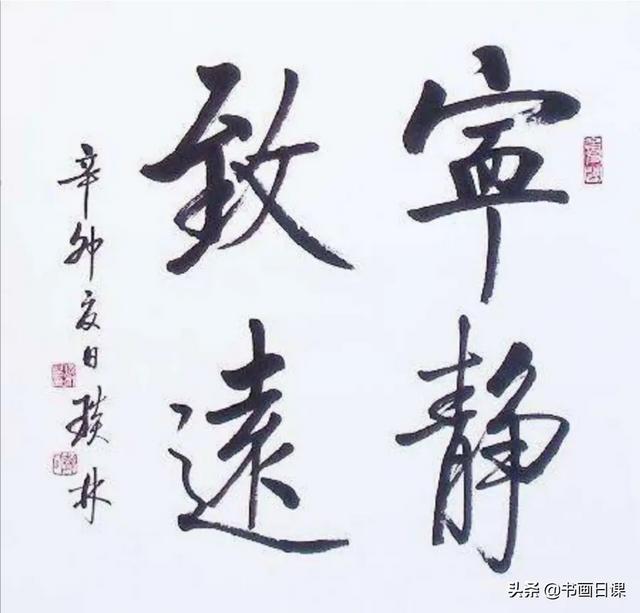 寧静
致遠
辛卯夏日琰林
头条 @书画日课